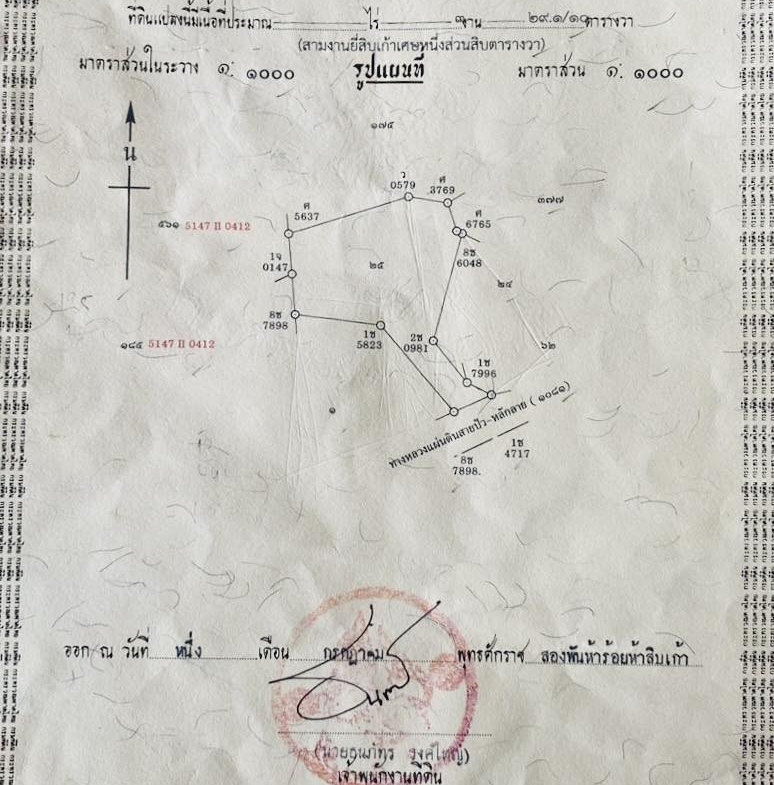 ที่ดินแปลงนี้มีเนื้อที่ประมาณ ไร่ งาน ๒๙.๑/๑๐ ตารางวา
(สามงานยี่สิบเก้าเศษหนึ่งส่วนสิบตารางวา)
มาตราส่วนในระวาง ๑: ๑๐๐๐ รูปแผนที่ มาตราส่วน ๑: ๑๐๐๐
๑๗๕
น
ว
0579
ศ
3769
๓๗๗
ศ
5637
ศ
6765
๕๖๑ 5147 II 0412
8ช
6048
1จ
0147
๒๕
๒๔
8ช
7898
1ช
5823
2ช
0981
๑๘๕ 5147 II 0412
๖๒
1ช
7996
๑
ทางหลวงแผ่นดินสายปัว-หลักลาย (๑๐๘๑)
1ช
4717
8ช
7898.
ออก ณ วันที่ หนึ่ง เดือน กรกฎาคม พุทธศักราช สองพันห้าร้อยห้าสิบเก้า
เจ้าพนักงานที่ดิน